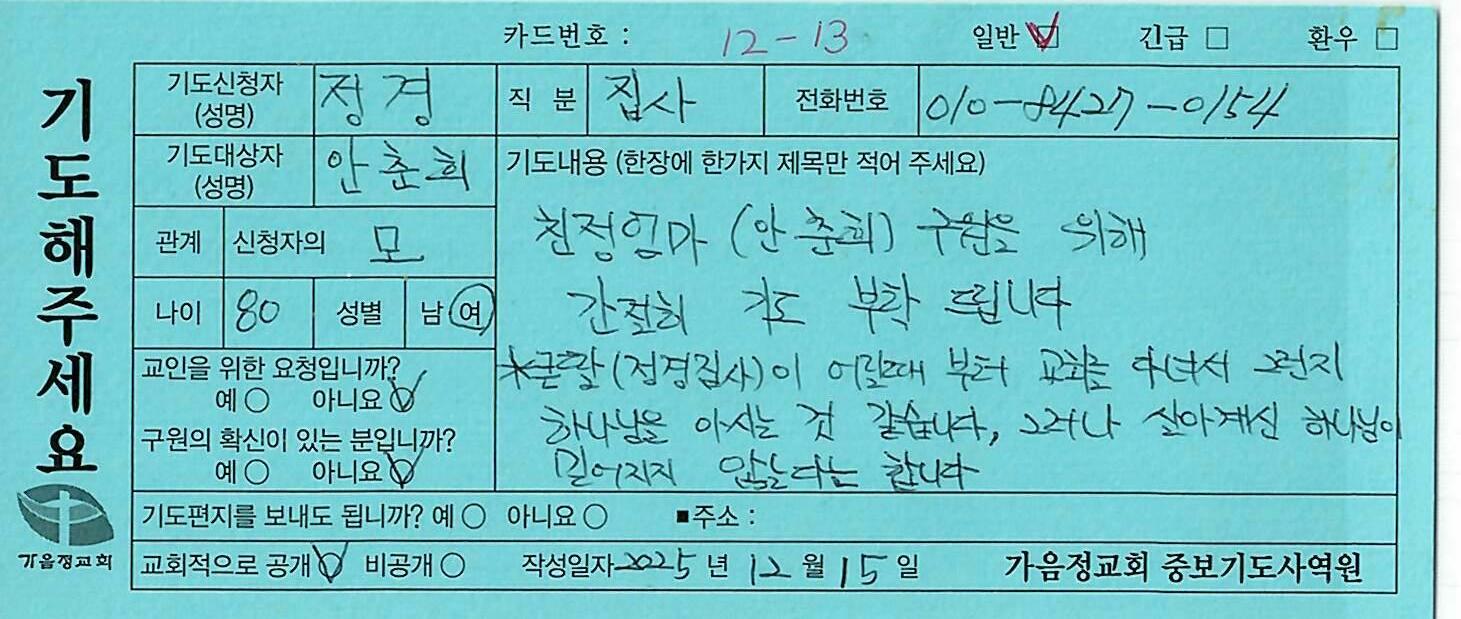 카드번호 : 12-13 일반 ☑ 긴급 □ 환우 □
기도해주세요
가음정교회
기도신청자 (성명) 정경 직 분 집사 전화번호 010-8427-0154
기도대상자 (성명) 안춘희
관계 신청자의 모
나이 80 성별 남 여
교인을 위한 요청입니까?
예 ○ 아니요 ☑
구원의 확신이 있는 분입니까?
예 ○ 아니요 ☑
기도내용 (한장에 한가지 제목만 적어 주세요)
친정엄마 (안춘희) 구원을 위해
간절히 기도 부탁 드립니다
*큰딸(정경집사)이 어릴때 부터 교회를 다녀서 그런지
하나님을 아시는 것 같습니다, 그러나 살아계신 하나님이
믿어지지 않는다는 합니다
기도편지를 보내도 됩니까? 예 ○ 아니요 ○ ■주소 :
교회적으로 공개 ☑ 비공개 ○ 작성일자 2025 년 12 월 15 일 가음정교회 중보기도사역원